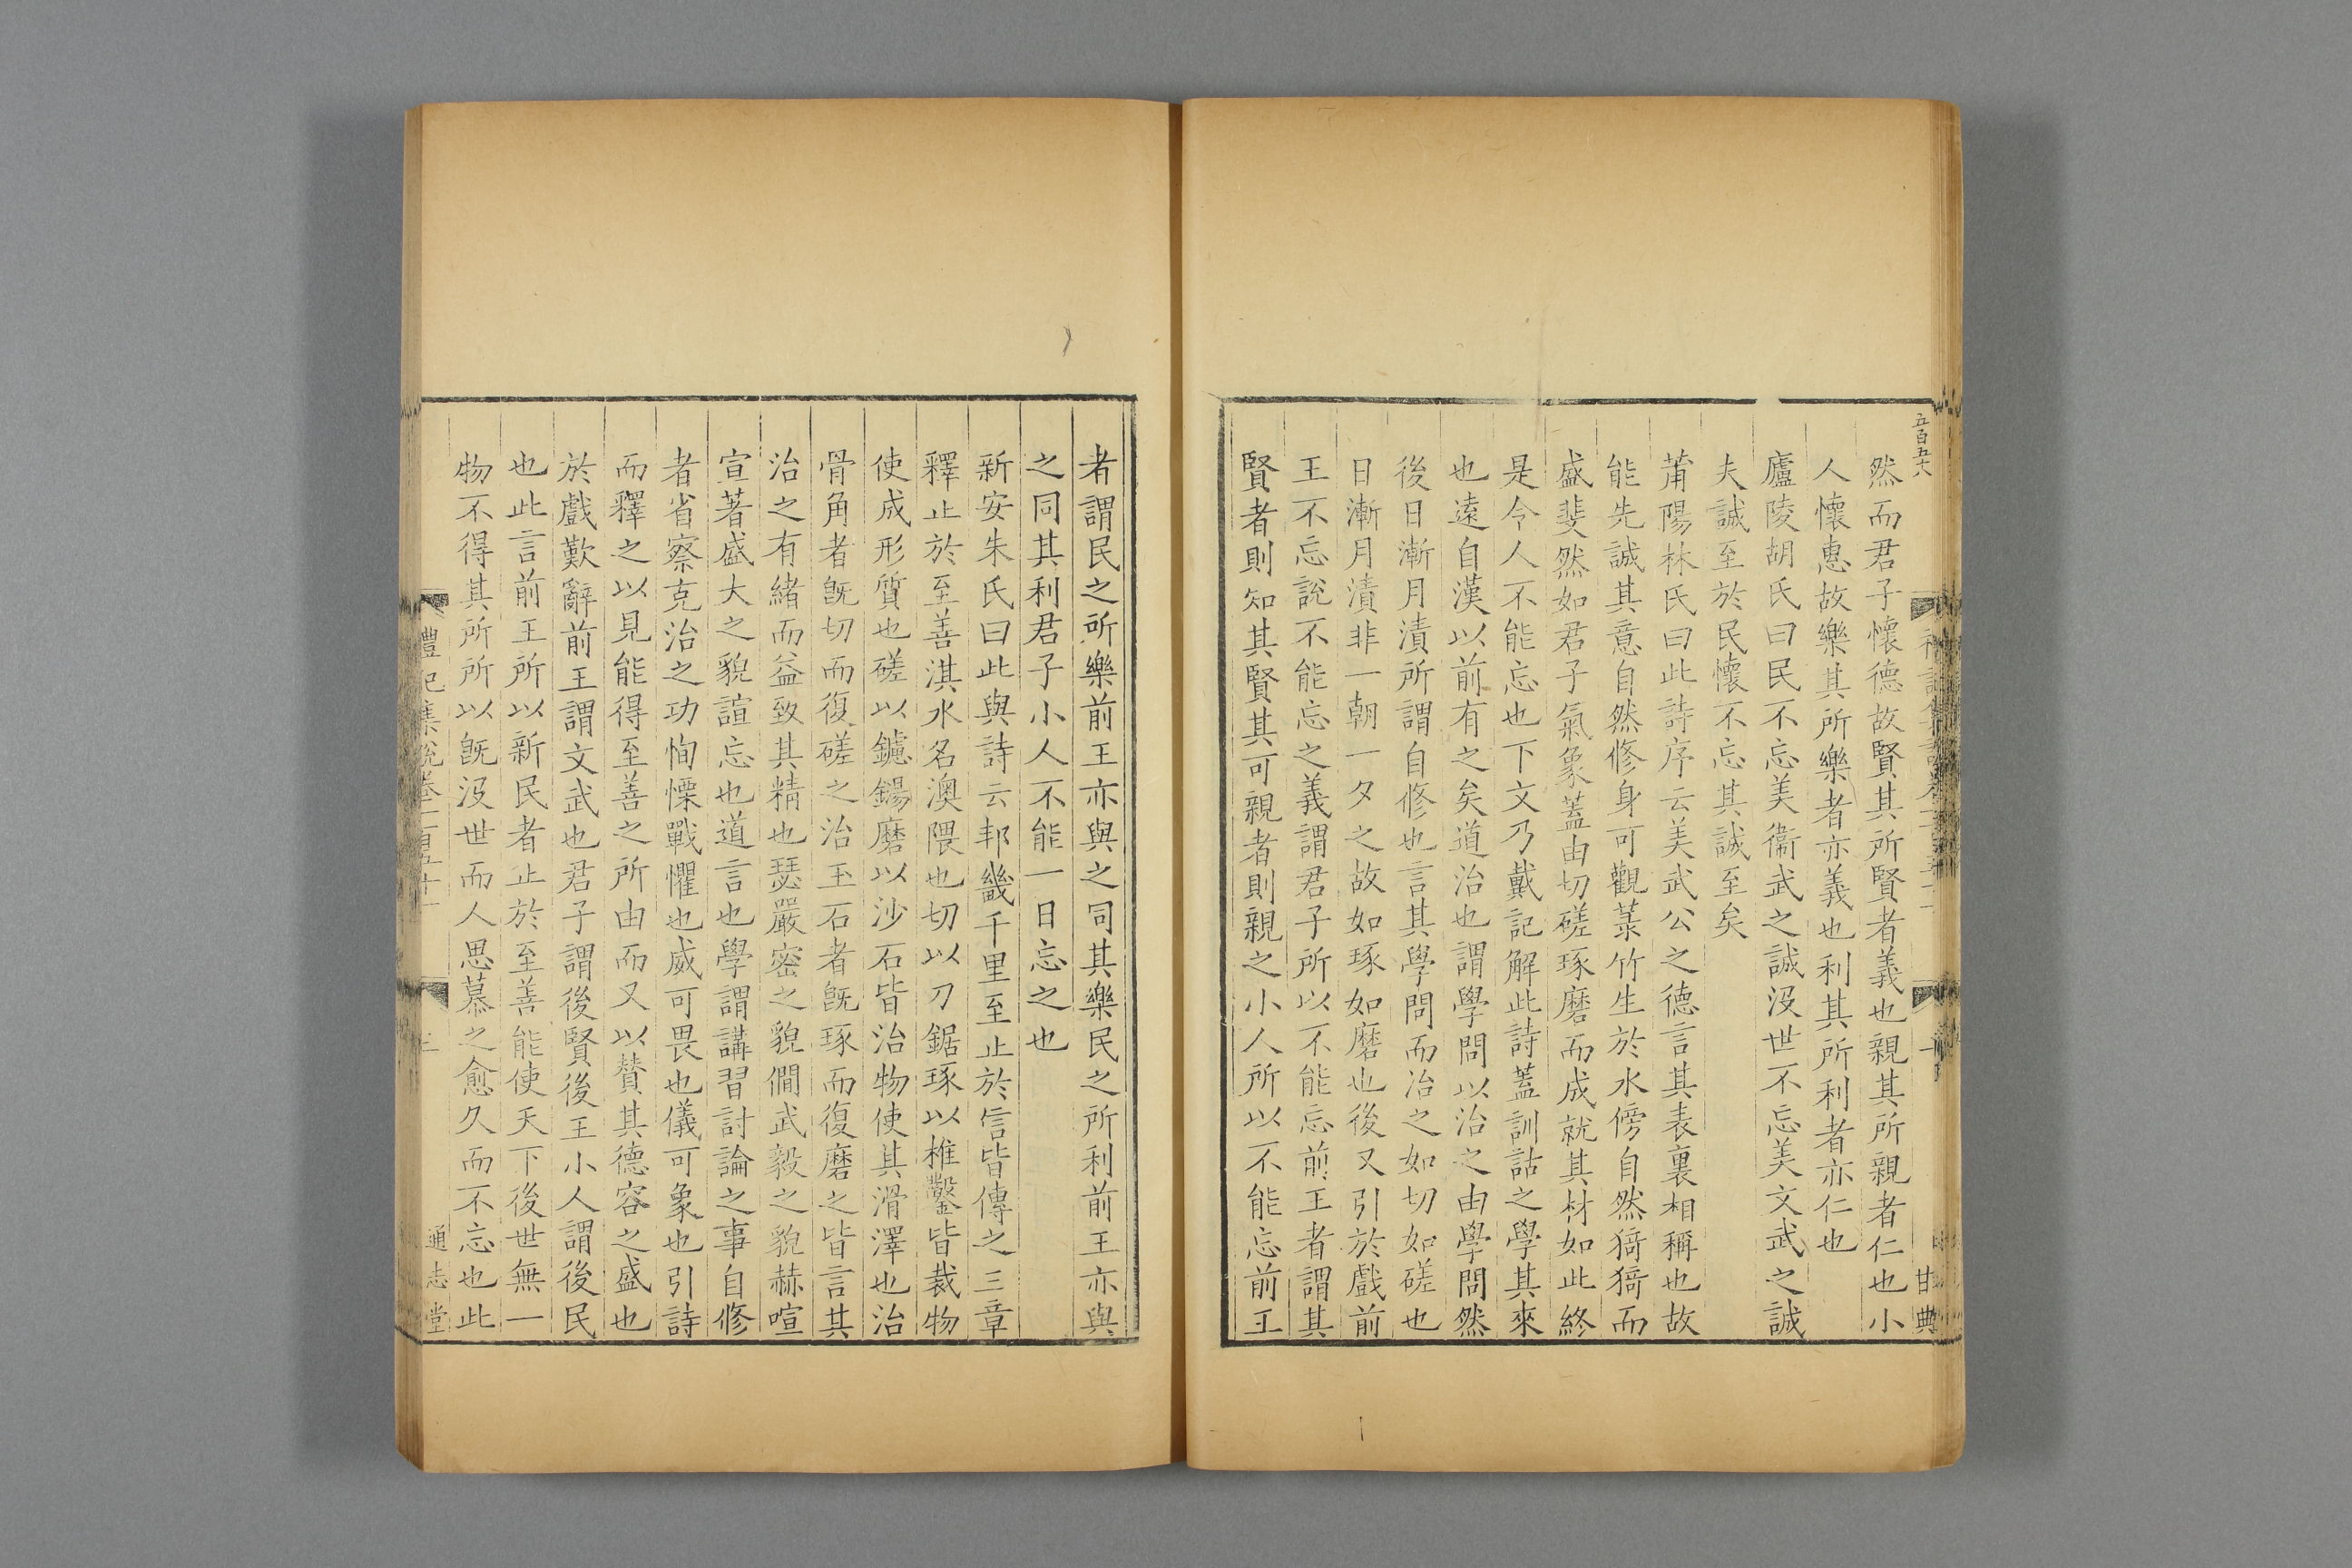 五百五六
然而君子懷德故賢其所賢者義也親其所親者仁也小
人懷惠故樂其所樂者亦義也利其所利者亦仁也
廬陵胡氏曰民不忘美衞武之誠沒世不忘美文武之誠
夫誠至於民懷不忘其誠至矣
莆陽林氏曰此詩序云美武公之德言其表裏相稱也故
能先誠其意自然修身可觀菉竹生於水傍自然猗猗而
盛斐然如君子氣象蓋由切磋琢磨而成就其材如此終
是令人不能忘也下文乃戴記解此詩蓋訓詁之學其來
也遠自漢以前有之矣道治也謂學問以治之由學問然
後日漸月漬所謂自修也言其學問而治之如切如磋也
日漸月漬非一朝一夕之故如琢如磨也後又引於戲前
王不忘說不能忘之義謂君子所以不能忘前王者謂其
賢者則知其賢其可親者則親之小人所以不能忘前王
甘典
者謂民之所樂前王亦與之同其樂民之所利前王亦與
之同其利君子小人不能一日忘之也
新安朱氏曰此與詩云邦畿千里至止於信皆傳之三章
釋止於至善淇水名澳隈也切以刀鋸琢以椎鑿皆裁物
使成形質也磋以鑢鐋磨以沙石皆治物使其滑澤也治
骨角者旣切而復磋之治玉石者旣琢而復磨之皆言其
治之有緒而益致其精也瑟嚴密之貌僩武毅之貌赫喧
宣著盛大之貌諠忘也道言也學謂講習討論之事自修
者省察克治之功恂慄戰懼也威可畏也儀可象也引詩
而釋之以見能得至善之所由而又以贊其德容之盛也
於戲歎辭前王謂文武也君子謂後賢後王小人謂後民
也此言前王所以新民者止於至善能使天下後世無一
物不得其所所以旣沒世而人思慕之愈久而不忘也此
禮記集說卷一百五十一
三
通志堂